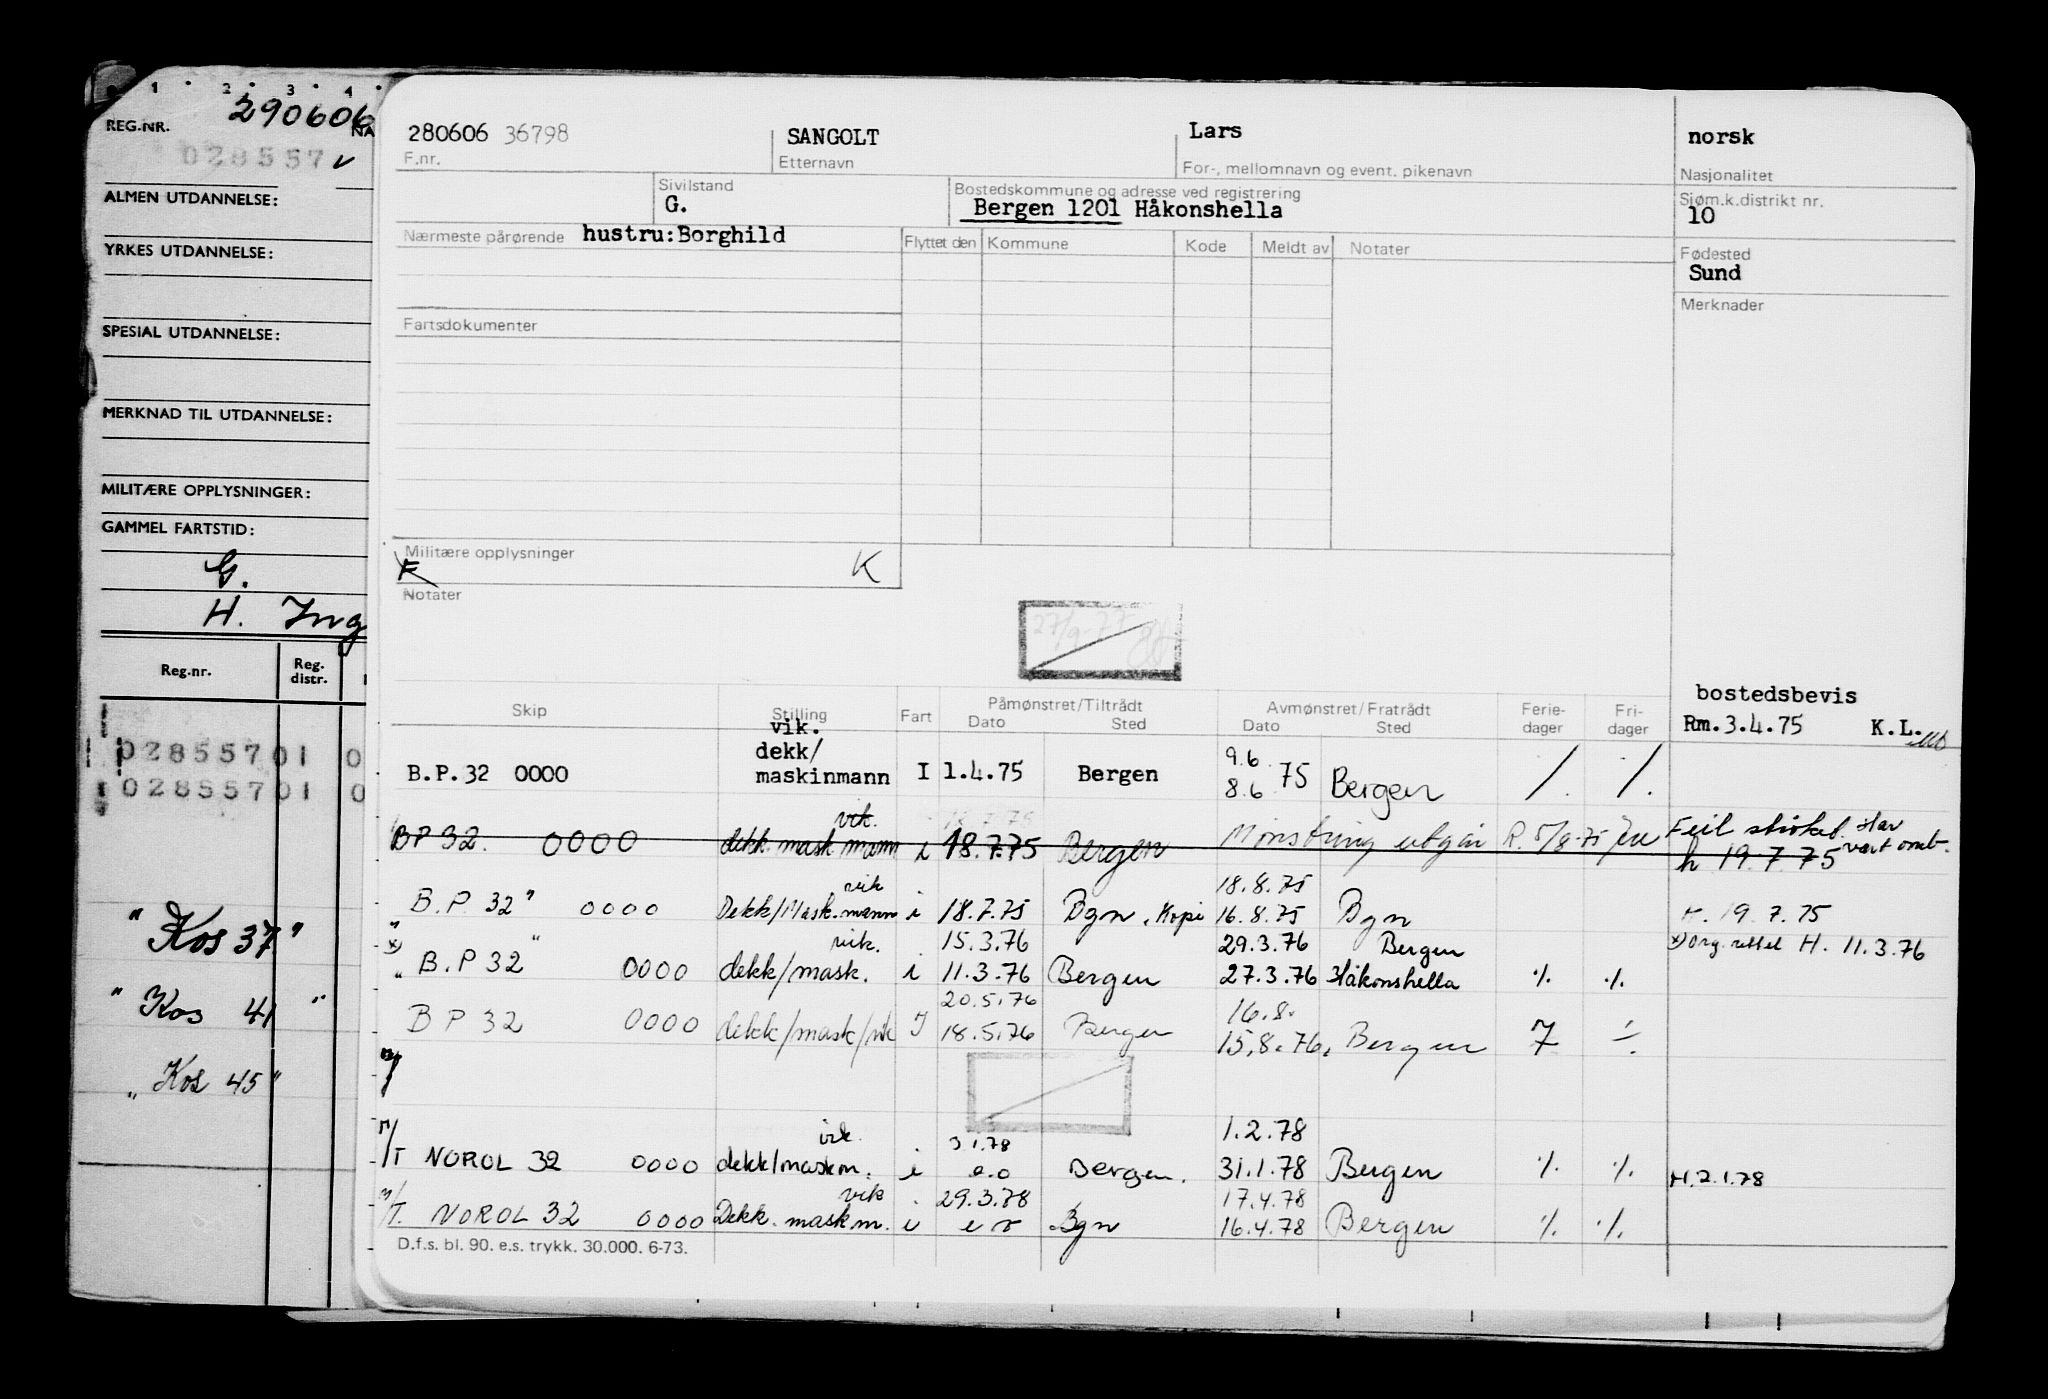 1 2 3 4
REG.NR. 290606 NA
028557
ALMEN UTDANNELSE:
YRKES UTDANNELSE:
SPESIAL UTDANNELSE:
MERKNAD TIL UTDANNELSE:
MILITÆRE OPPLYSNINGER:
GAMMEL FARTSTID:
G.
H. Ing
Reg.nr. Reg. distr.
02855701 0
02855701 0
"Kos 37"
"Kos 41"
"Kos 45"
280606 36798 SANGOLT Lars norsk
F.nr. Etternavn For-, mellomnavn og event. pikenavn Nasjonalitet
Sivilstand Bostedskommune og adresse ved registrering Sjøm.k.distrikt nr.
G. Bergen 1201 Håkonshella 10
Nærmeste pårørende hustru:Borghild Flyttet den Kommune Kode Meldt av Notater Fødested
Sund
Merknader
Fartsdokumenter
Militære opplysninger K
F
Notater
27/9-77
bostedsbevis
Skip Stilling Fart Påmønstret/Tiltrådt Avmønstret/Fratrådt Ferie- Fri-
Dato Sted Dato Sted dager dager Rm.3.4.75 K.L.
vik.
dekk/ 9.6
B.P.32 0000 maskinmann I 1.4.75 Bergen 8.6.75 Bergen /. /.
vik.
BP 32. 0000 dekk.mask.mann i 18.7.75 Bergen Mønstring utgår R. 5/8-75 Feil Har vært
h 19.7.75
vik 18.8.75
B.P. 32" 0000 Dekk/Mask.mann i 18.7.75 Bgn, Kopi 16.8.75 Bgn 19.7.75
vik. 15.3.76 29.3.76 Bergen H. 11.3.76
"B.P 32" 0000 dekk/mask. i 11.3.76 Bergen 27.3.76 Håkonshella ./. ./.
20.5.76 16.8.
B P 32 0000 dekk/mask/vik I 18.5.76 Bergen 15.8.76. Bergen 7 ./.
vik. 3.1.78 1.2.78
M/T NOROL 32 0000 dekk/maskm. i e.o Bergen. 31.1.78 Bergen ./. ./. H.2.1.78
vik 29.3.78 17.4.78
M/T. NOROL 32 0000 Dekk.maskm. i e o Bgn 16.4.78 Bergen ./. ./.
D.f.s. bl. 90. e.s. trykk. 30.000. 6-73.